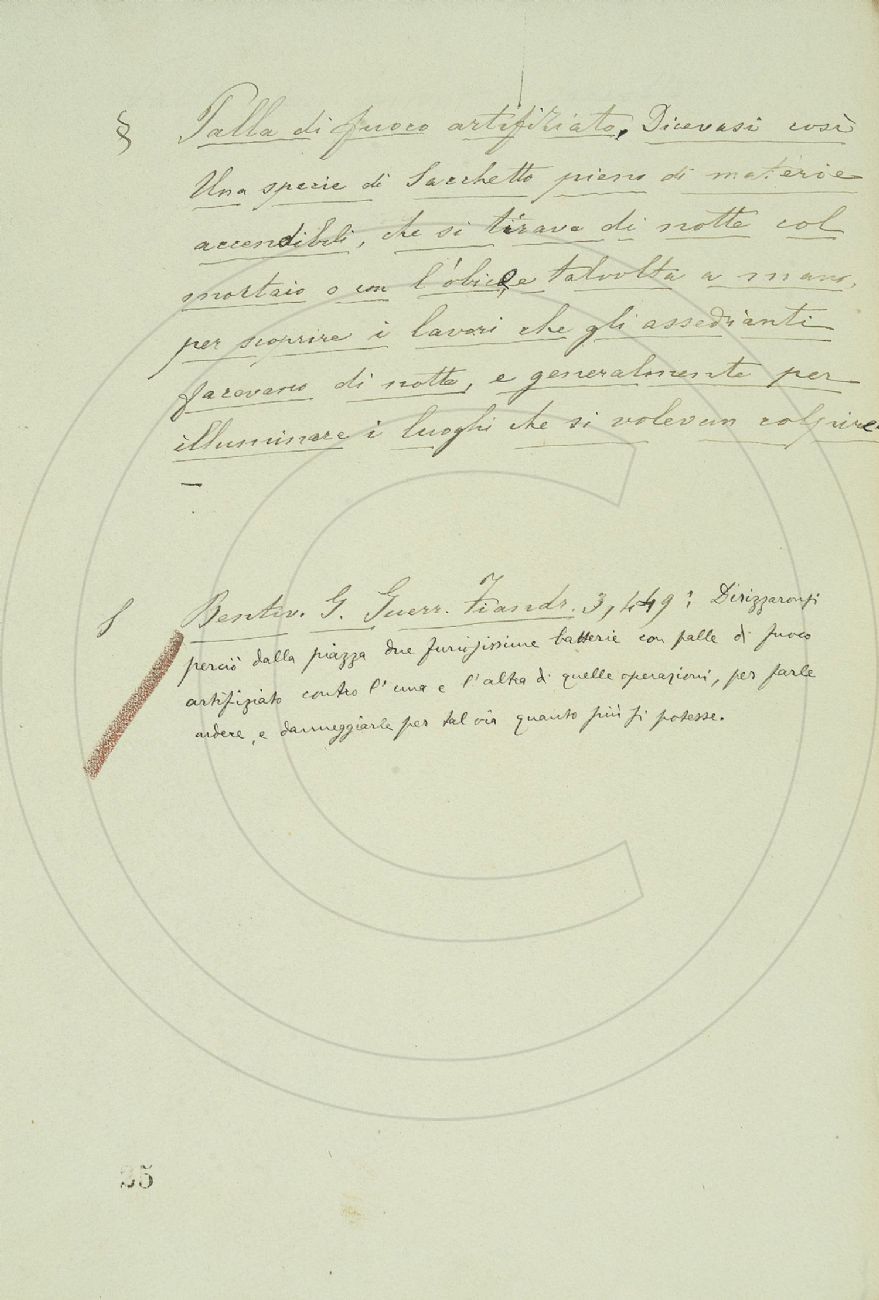 § Palla di fuoco artifiziato. Dicevasi così
Una specie di Sacchetto pieno di materie
accendibili, che si tirava di notte col
mortaio o con l'obice, e talvolta a mano,
per scoprire i lavori che gli assedianti
facevano di notte, e generalmente per
illuminare i luoghi che si volevan colpire.
—
Bentiv. G. Guerr. Fiandr. 3, 449: Dirizzaronsi
perciò dalla piazza due furiosissime batterie con palle di fuoco
artifiziato contro l'una e l'altra di quelle operazioni, per farle
ardere, e danneggiarle per tal via quanto più si potesse.